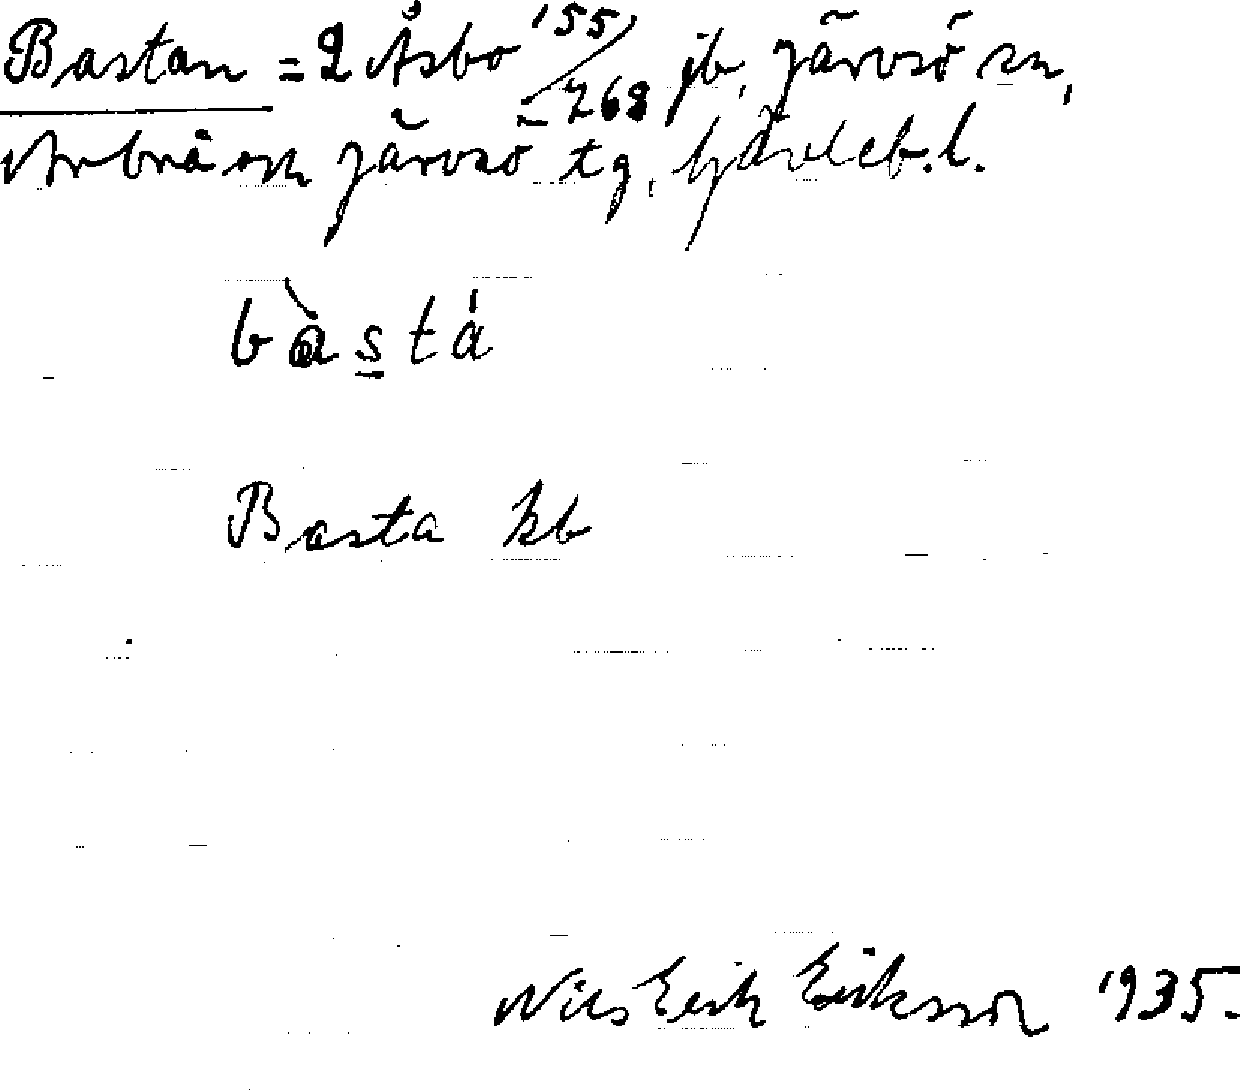 Bastan = 2 Åsbo 155/268 jb, Järvsö sn,
Arbrå och Järvsö tg, Gävleb. l.
bàstá
Basta kb
Nils Erik Eriksson 1935.